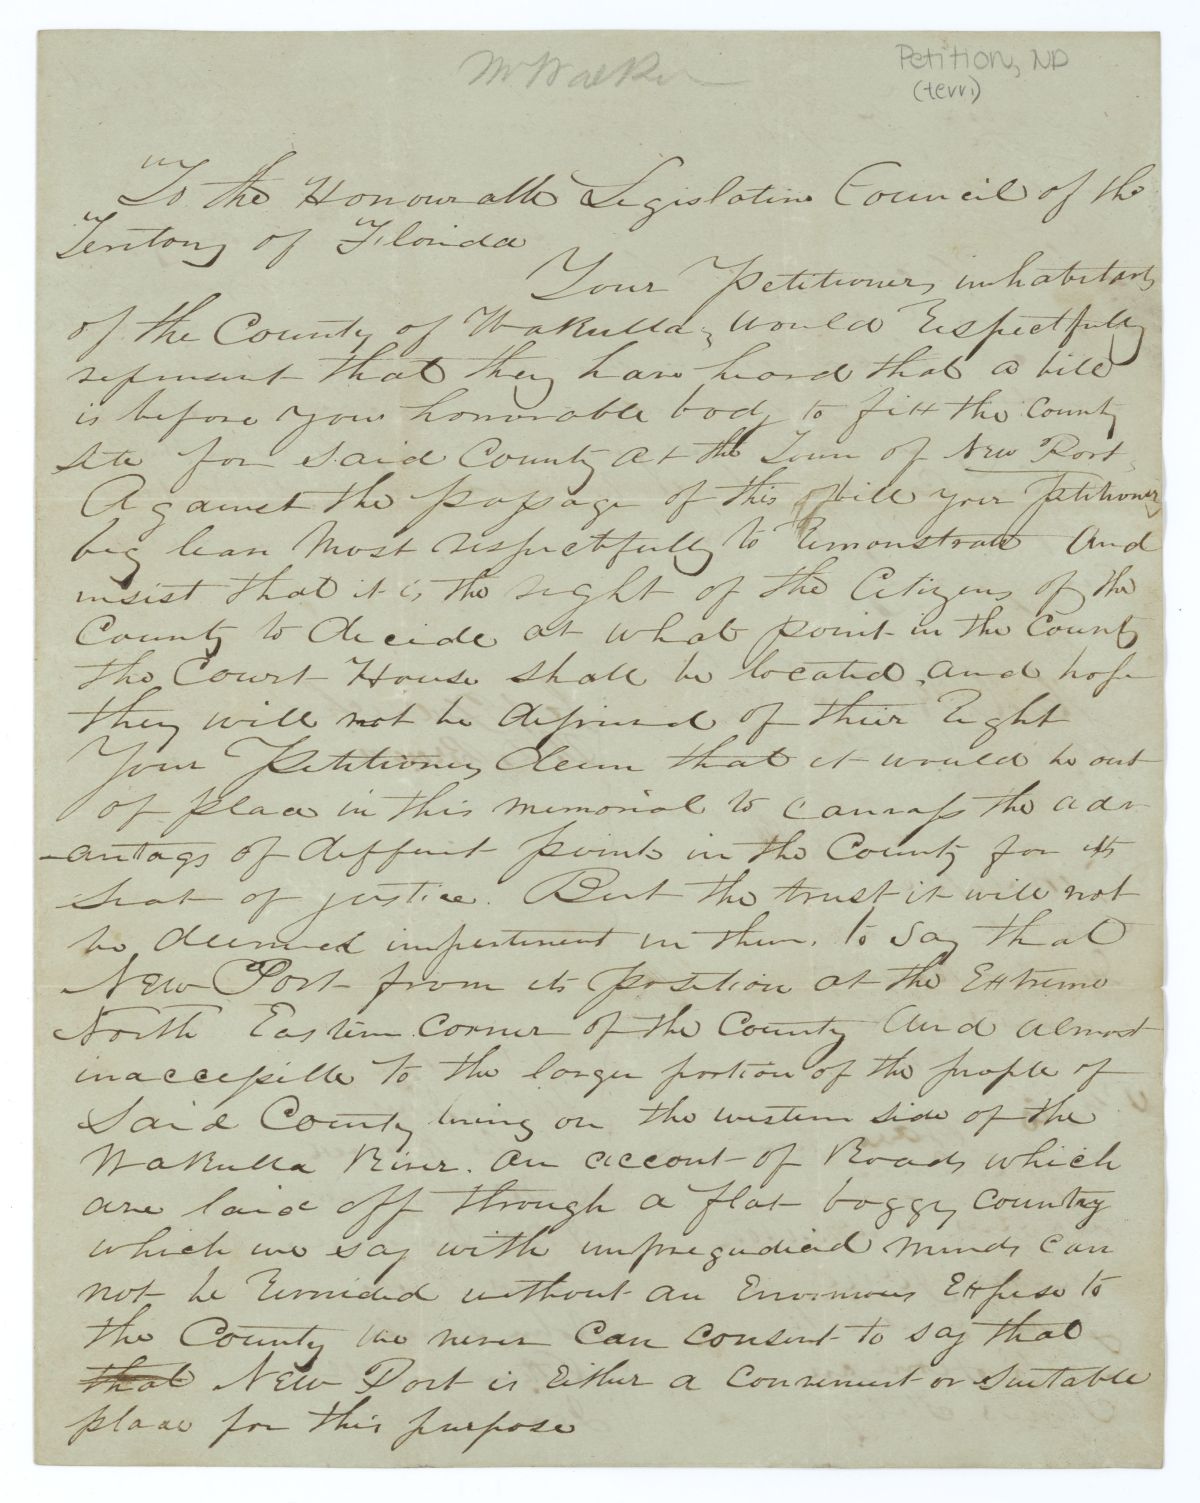 Mr Walker
Petition, ND
(terri)
To the Honourable Legislative Council of the
Territory of Florida
Your Petitioners, inhabitants
of the County of Wakulla, would respectfully
represent that they have heard that a bill
is before your honorable body to fix the County
site for said County at the Town of New Port,
Against the passage of this bill your petitioners
beg leave most respectfully to remonstrate And
insist that it is the right of the Citizens of the
County to decide at what point in the County
the Court House shall be located, and hope
they will not be deprived of their right
Your Petitioners deem that it would be out
of place in this memorial to canvass the adv-
-antags of diffent points in the County for its
seat of justice. But the trust it will not
be deemed impertinent in them, to say that
New Port from its position at the Extreme
North Eastern corner of the County And almost
inaccessible to the larger portion of the people of
said County living on the western side of the
Wakulla River. on account of Roads which
are laid off through a flat boggy country
which we say with unpregudiced minds can
not be remided without an Enormous Expese to
the County we never can consent to say that
that New Port is Either a convenient or suitable
place for this purpose